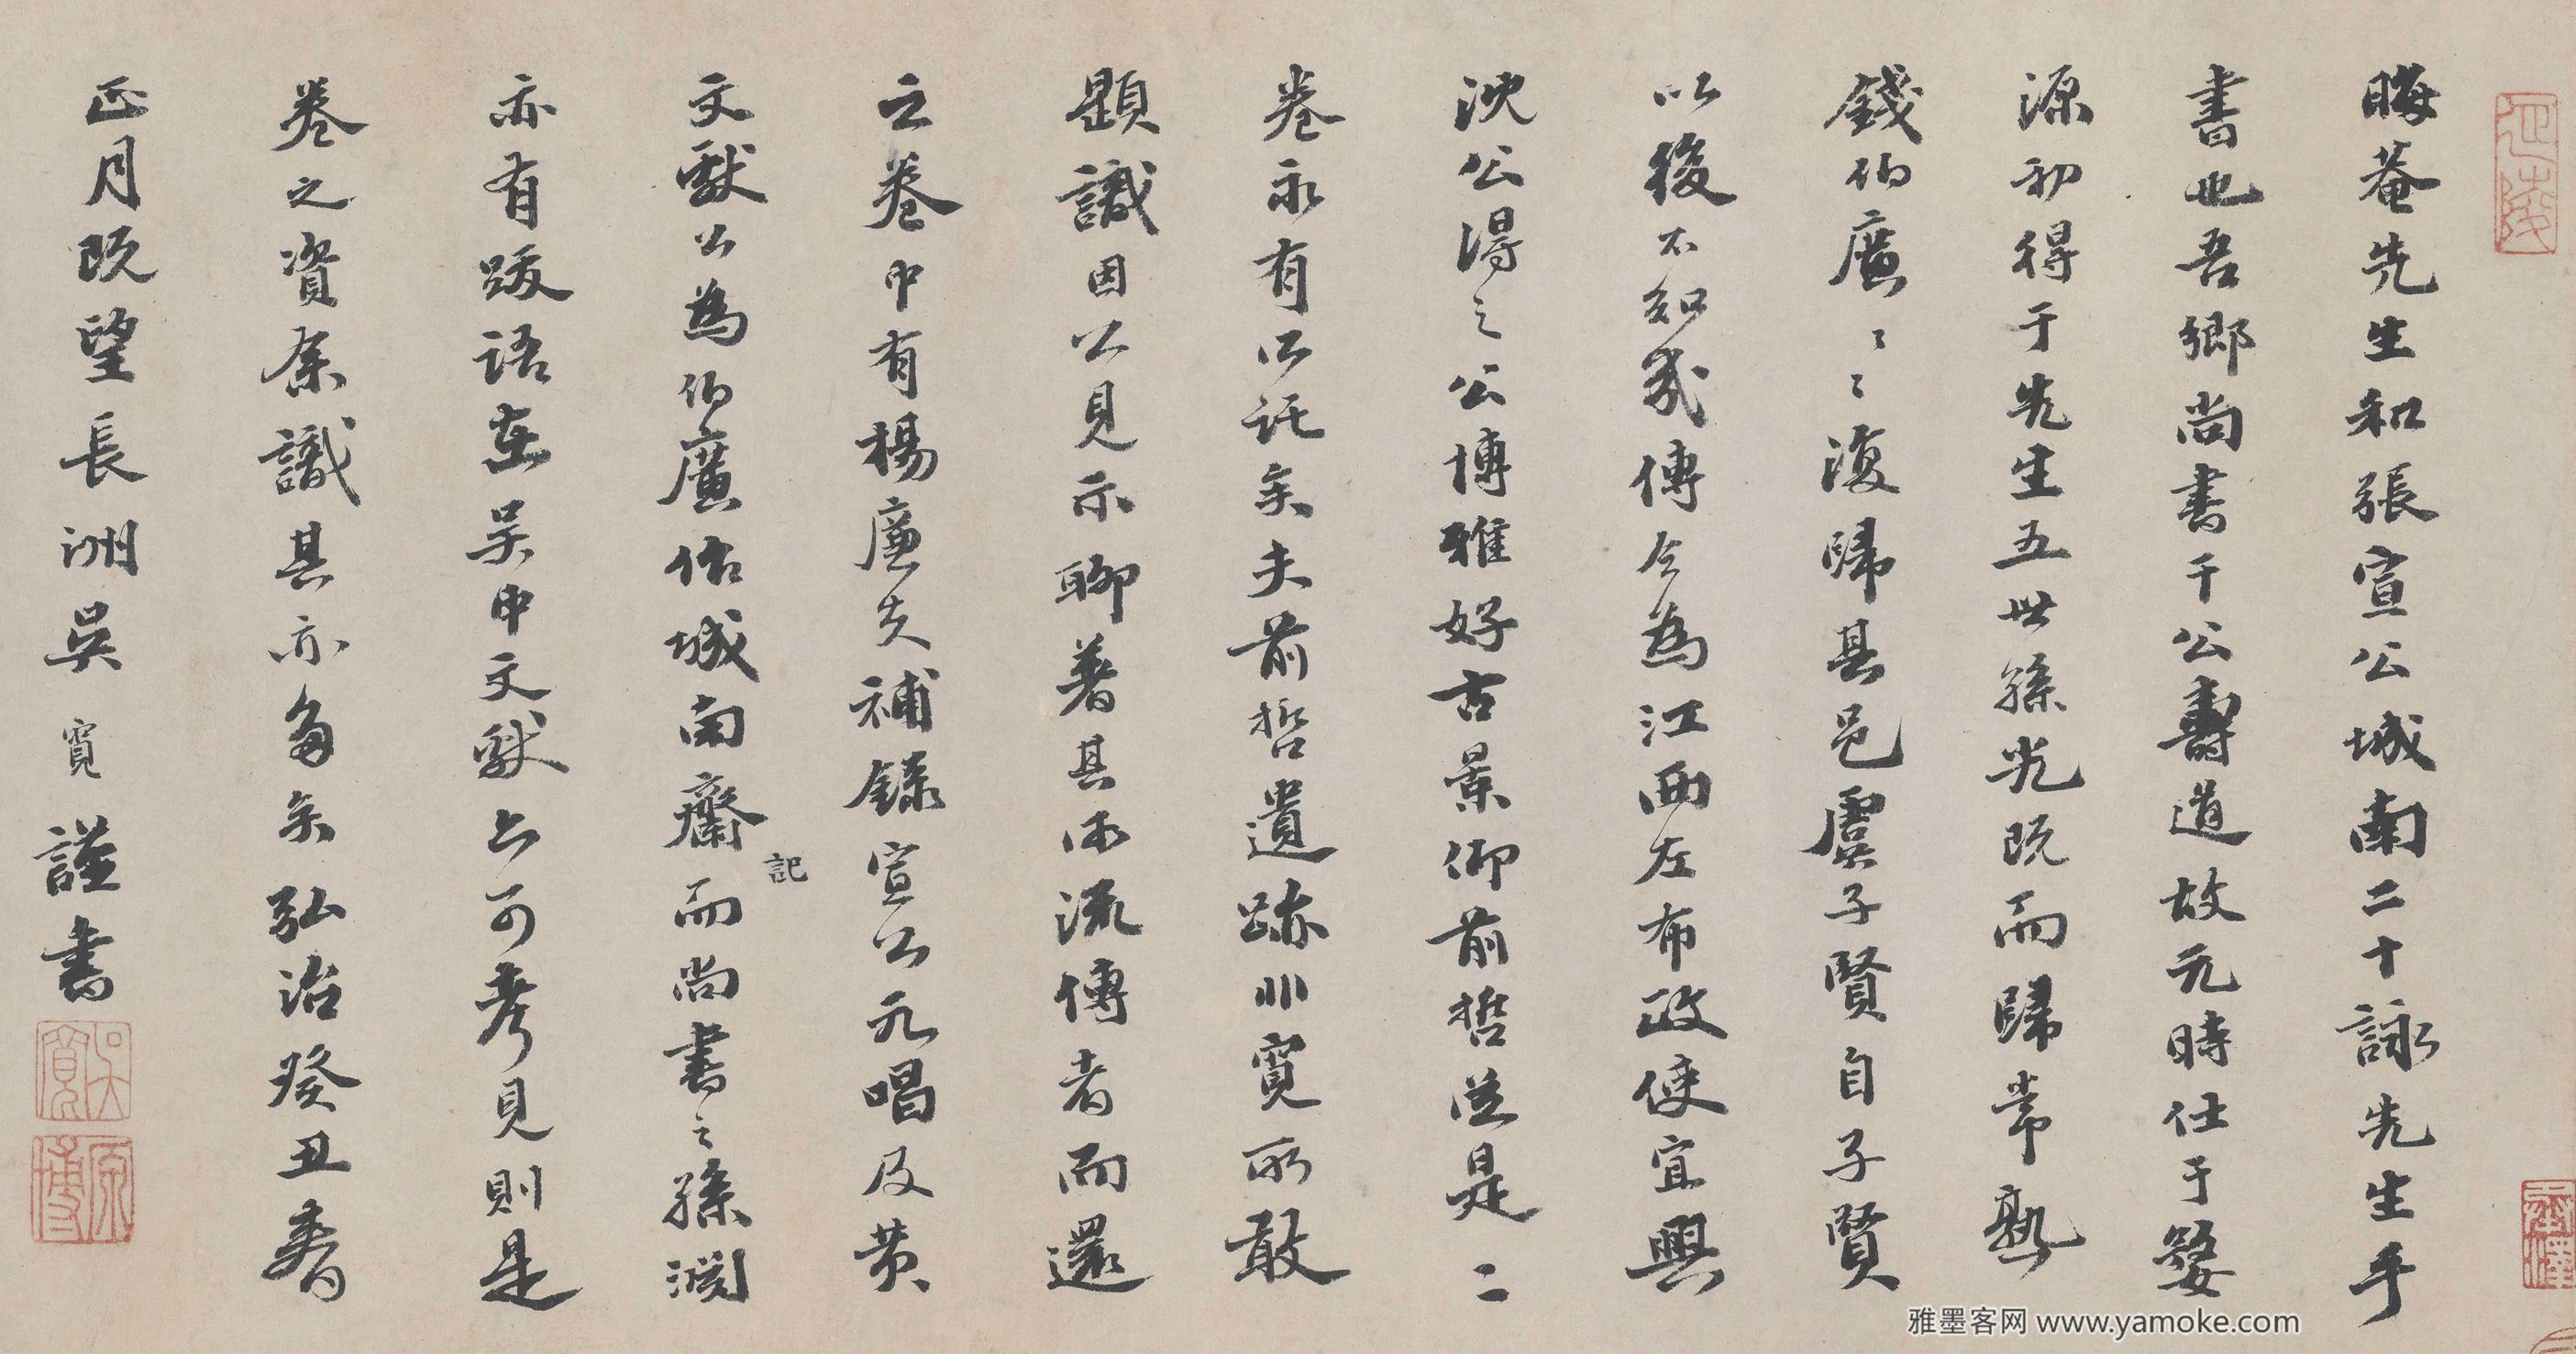 晦菴先生和張宣公城南二十詠先生手
書也吾鄉尚書干公壽道故元時仕于婺
源初得于先生五世孫光既而歸常熟
錢伯廣〻〻復歸其邑虞子賢自子賢
以後不知幾傳今為江西左布政使宜興
沈公得之公博雅好古景仰前哲從是二
卷永有所託矣夫前哲遺跡非寬所敢
題識因公見示聊著其所流傳者而還
之卷中有楊廉夫補錄宣公元唱及黄
文獻公為伯廣作城南齋記而尚書之孫淵
亦有跋語在吴中文獻亦可考見則是
卷之資余識其亦多矣弘治癸丑春
正月既望長洲吳寬謹書
吳寬
原博
雅墨客网 www.yamoke.com